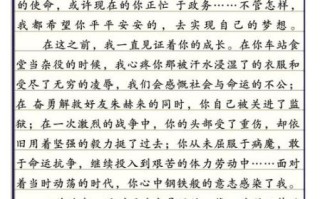 的使命，或许现在的你正忙于政务……不管怎样，
我都希望你平平安安的，去实现自己的梦想。
在这之前，我一直见证着你的成长。在你车站食
堂当杂役的时候，我心疼你那被汗水浸湿了的衣服和
受尽了无穷的凌辱，我们会感慨社会与命运的不公；
在奋勇解救好友朱赫来的同时，你自己被关进了监
狱；在一次激烈的战争中，你的头部受了重伤，却依
旧用着坚强的毅力挺了过去；你从未屈服于病魔，敢
于命运抗争，继续投入到艰苦的体力劳动中……面对
着当时动荡的时代，你心中钢铁般的意志感染了我。